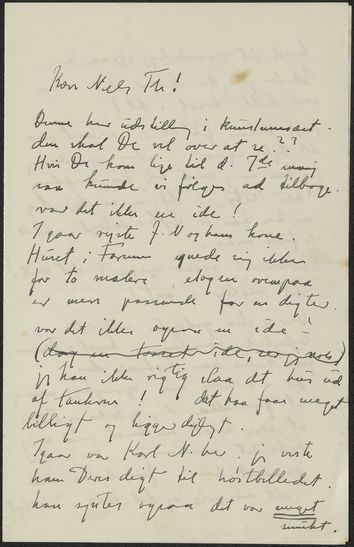 Kære Niels Th!
Denne her udstilling i kunstmuseet -
den skal De vel over at se??
Hvis De kom lige til d. 7de maj
saa kunde vi følges ad tilbage.
var det ikke en idé!
Igaar rejste J. V og hans kone.
Huset i Farum egnede sig ikke
for to malere, etagen ovenpaa
er mere passende for en digter.
var det ikke ogsaa en idé -
(dog en tosset idé,
jeg kan ikke rigtig slaa det hus ud
af tankerne! det kan faas meget
billigt og ligger dejligt.
Igaar var Karl N. her. jeg viste
ham Deres digt til høstbilledet.
han syntes ogsaa det var meget
smukt.